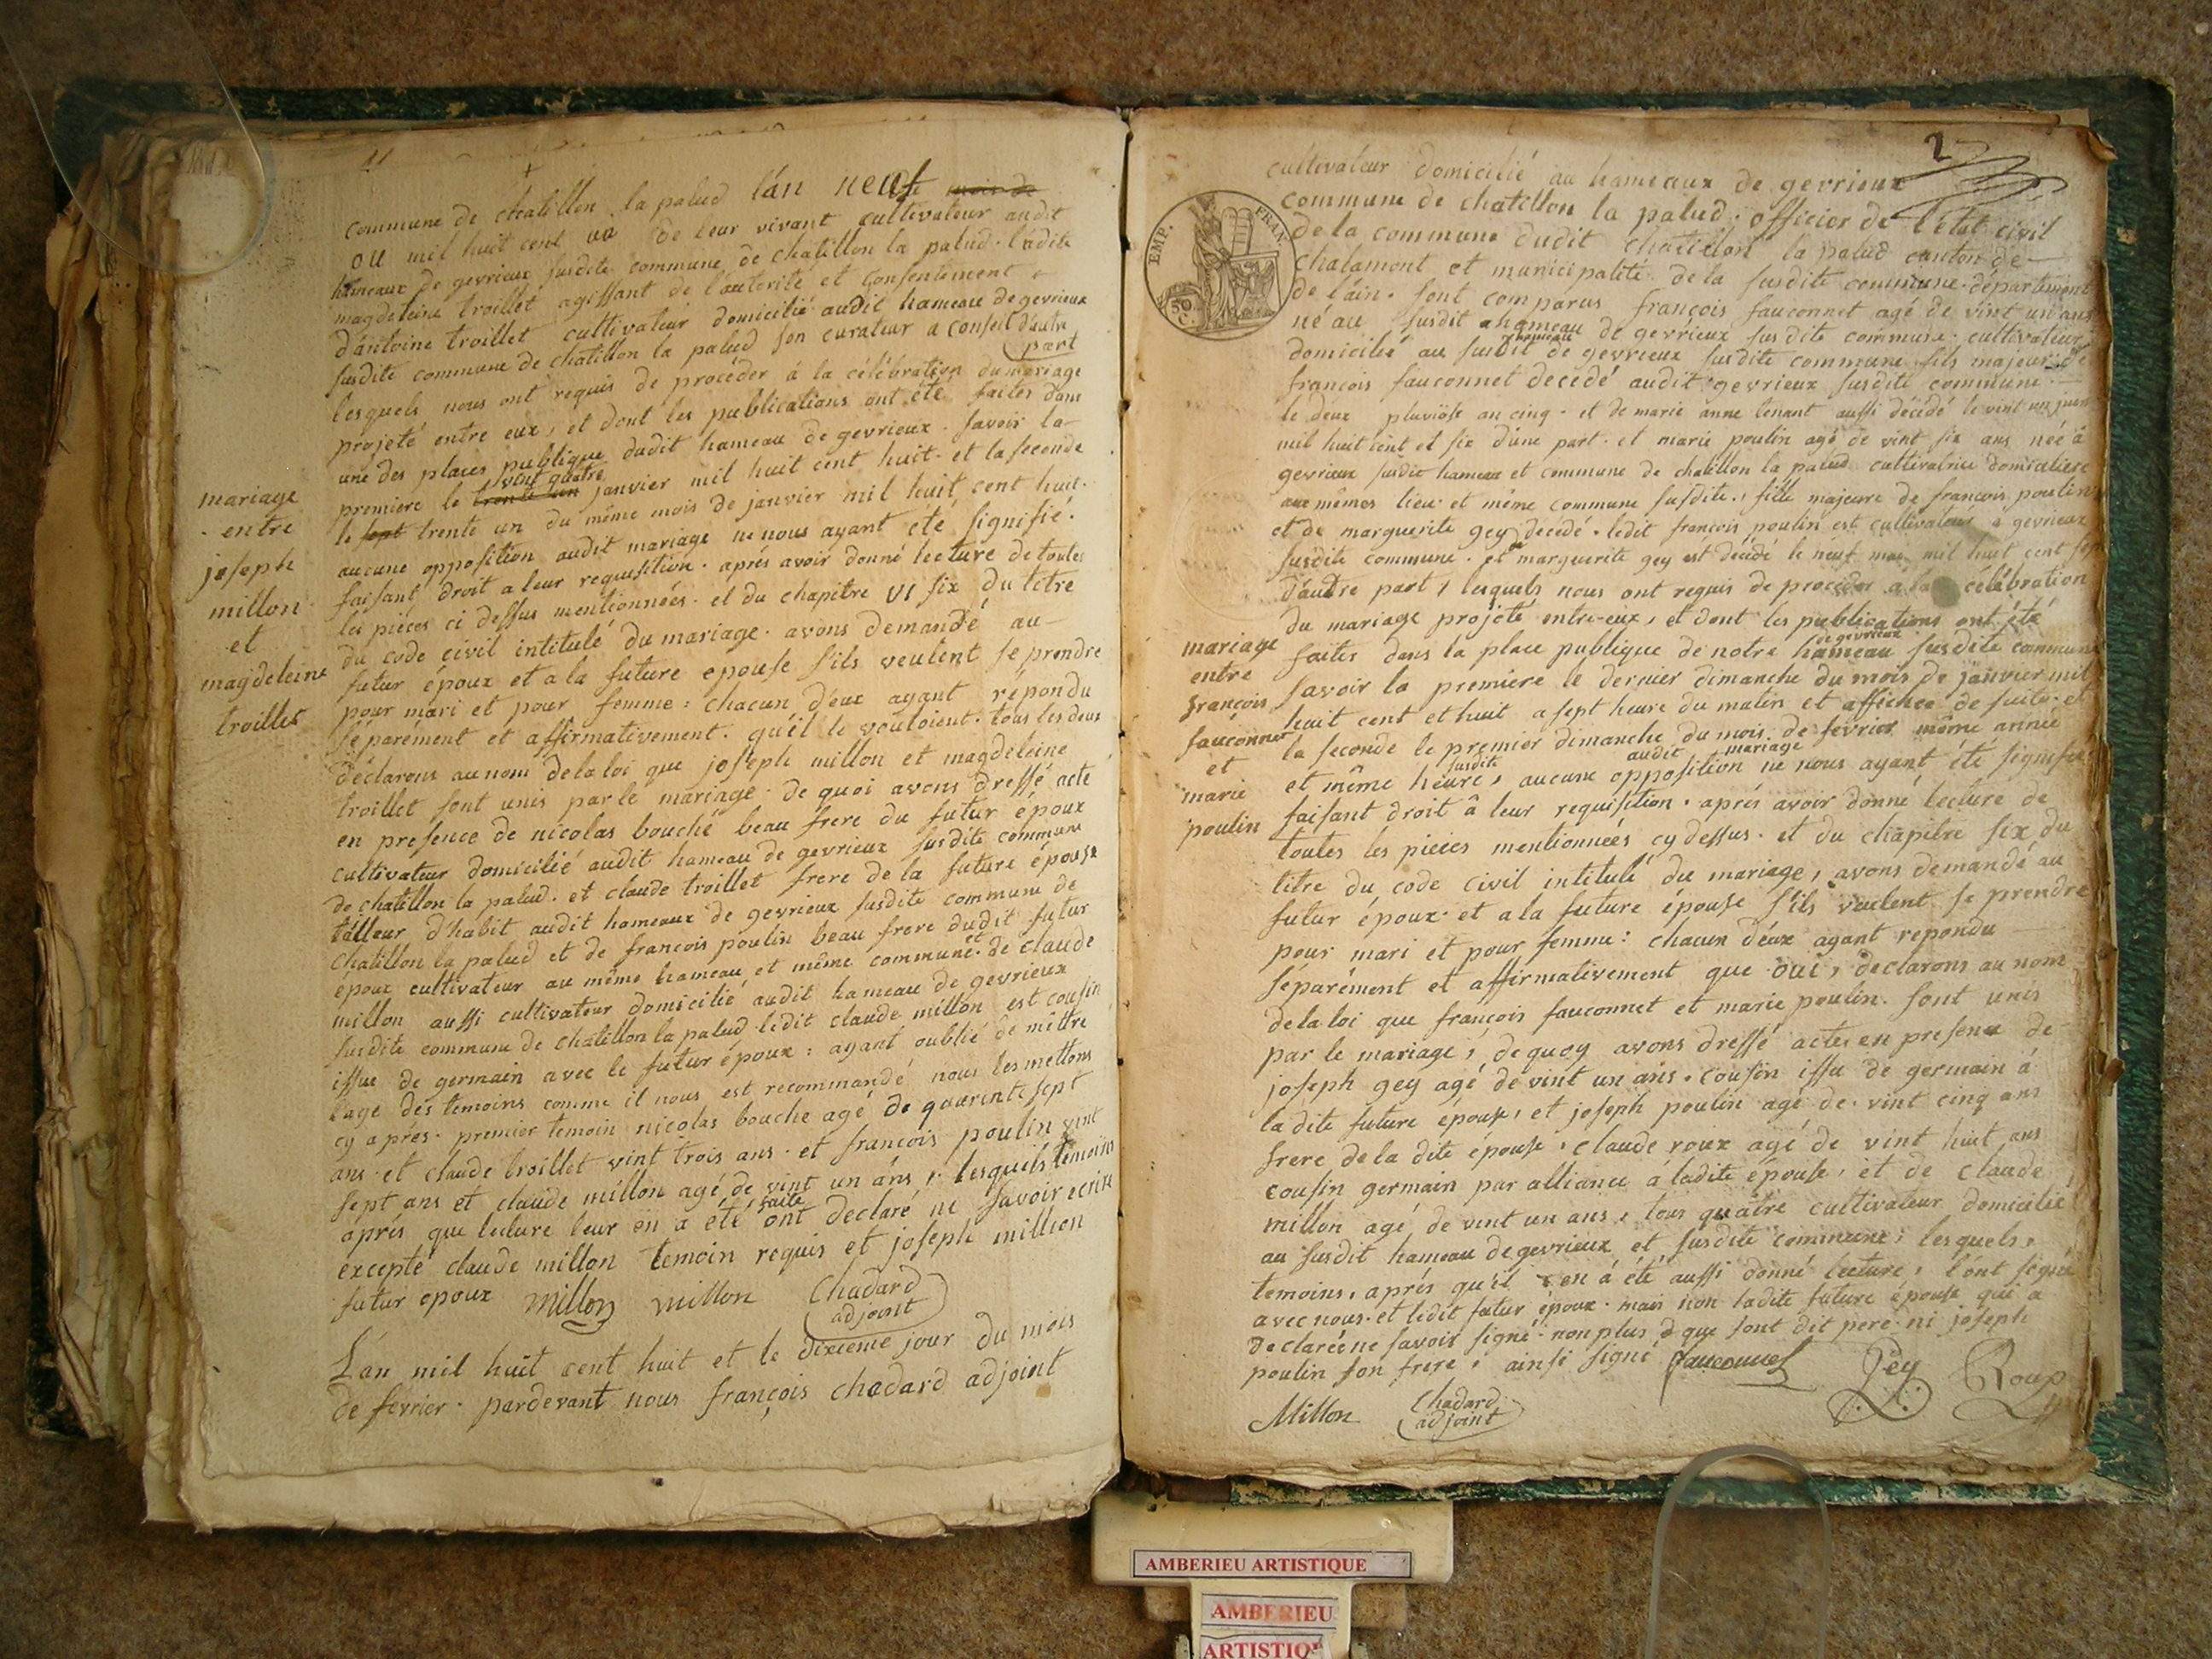 commune de chatillon la palud l'an neuf mois de
ou mil huit cent un de leur vivant cultivateur audit
hameaux de gevrieux susdite commune de chatillon la palud. ladite
magdeleine troillet agissant de l'autorité et consentement
d'antoine troillet cultivateur domicilié audit hameau de gevrieux
susdite commune de chatillon la palud son curateur a conseil d'autre
part
lesquels nous ont requis de procéder à la célébration du mariage
projeté entre eux, et dont les publications ont été faites dans
une des places publique dudit hameau de gevrieux. savoir la
vint quatre
premiere le trente un janvier mil huit cent huit. et la seconde
le sept trente un du même mois de janvier mil huit cent huit.
aucune opposition audit mariage ne nous ayant été signifié.
faisant droit a leur requisition. aprés avoir donné lecture de toutes
les piéces ci dessus mentionnées. et du chapitre VI six du titre
du code civil intitulé du mariage. avons demandé au
futur époux et a la future epouse s'ils veulent se prendre
pour mari et pour femme: chacun d'eux ayant répondu
séparement et affirmativement. qu'il le vouloient. tous les deux
déclarons au nom de la loi que joseph millon et magdeleine
troillet sont unis par le mariage. de quoi avons dressé acte
en presence de nicolas bouché beau frere du futur époux
cultivateur domicilié audit hameau de gevrieux susdite commune
de chatillon la palud. et claude troillet frere de la future épouse
tailleur d'habit audit hameaux de gevrieux susdite commune de
chatillon la palud et de francois poulin beau frere dudit futur
époux cultivateur au même hameau et même commune. et de claude
millon aussi cultivateur domicilié audit hameau de gevrieux
susdite commune de chatillon la palud ledit claude millon est cousin
issue de germain avec le futur époux: ayant oublié de mettre
l'age des temoins comme il nous est recommandé nous les mettons
cy aprés. premier temoin nicolas bouche agé de quarente sept
ans. et claude troillet vint trois ans. et francois poulin vint
sept ans et claude millon agé de vint un ans, lesquels temoins
aprés que lecture leur en a eté faite ont declaré ne savoir ecrire
excepté claude millon temoin requis et joseph million
futur epoux millon millon Chadard
adjoint
L'an mil huit cent huit et le dixieme jour du mois
de fevrier. pardevant nous françois chadard adjoint
mariage
entre
joseph
millon
et
magdeleine
troillet
2
EMP. FRAN
50
C.
cultivateur domicilié au hameaux de gevrieux
commune de chatillon la palud. officier de l'état civil
de la commune dudit chatillon la palud canton de
chalamont et municipalité de la susdite commune. département
de l'ain. sont comparus françois fauconnet agé de vint un ans
né au susdit hameau de gevrieux susdite commune. cultivateur
hameau
domicilié au susdit de gevrieux susdite commune fils majeur de
françois fauconnet decedé audit gevrieux susdite commune
le deux pluviôse an cinq. et de marie anne tenant aussi décédé le vint un juin
mil huit cent et six d'une part. et marie poulin agé de vint six ans née à
gevrieux susdit hameau et commune de chatillon la palud cultivatrice domiciliere
aux mêmes lieu et même commune susdite, fille majeure de francois poulin
et de marguerite gey decedé. ledit françois poulin est cultivateur a gevrieux
susdite commune. et marguerite gey est décédé le neuf mil huit cent
d'autre part, lesquels nous ont requis de proceder a la célébration
du mariage projeté entre-eux, et dont les publications ont été
de gevrieux
faites dans la place publique de notre hameau susdite commune
savoir la premiere le dernier dimanche du mois de janvier mil
huit cent et huit a sept heure du matin et affichée de suite. et
la seconde le premier dimanche du mois de fevrier même année
susdite audit mariage
et même heure, aucune opposition ne nous ayant été signifié
faisant droit à leur requisition. aprés avoir donné lecture de
toutes les pieces mentionnées cy dessus. et du chapitre six du
titre du code civil intitulé du mariage, avons demandé au
futur époux. et a la future épouse s'ils veulent se prendre
pour mari et pour femme: chacun d'eux ayant repondu
séparément et affirmativement que oui, declarons au nom
de la loi que françois fauconnet et marie poulin. sont unis
par le mariage, de quoy avons dressé acte en presence de
joseph gey agé de vint un ans. cousin issu de germain à
la dite future épouse, et joseph poulin agé de vint cinq ans
frere de la dite épouse, claude roux agé de vint huit ans
cousin germain par alliance à ladite épouse, et de claude
millon agé de vint un ans, tous quatre cultivateur domicilié
au susdit hameau de gevrieux et susdite commune, lesquels,
temoins, aprés qu'il en à été aussi donné lecture, l'ont signé
avec nous. et ledit futur époux. mais non ladite future épouse qui a
declaréene savoir signé. non plus que sont dit pere. ni joseph
poulin son frere, ainsi signé fauconnet Gey Roup
Millon Chadard
adjoint
mariage
entre
françois
fauconnet
et
marie
poulin
AMBERIEU ARTISTIQUE
AMBERIEU
ARTISTIQU